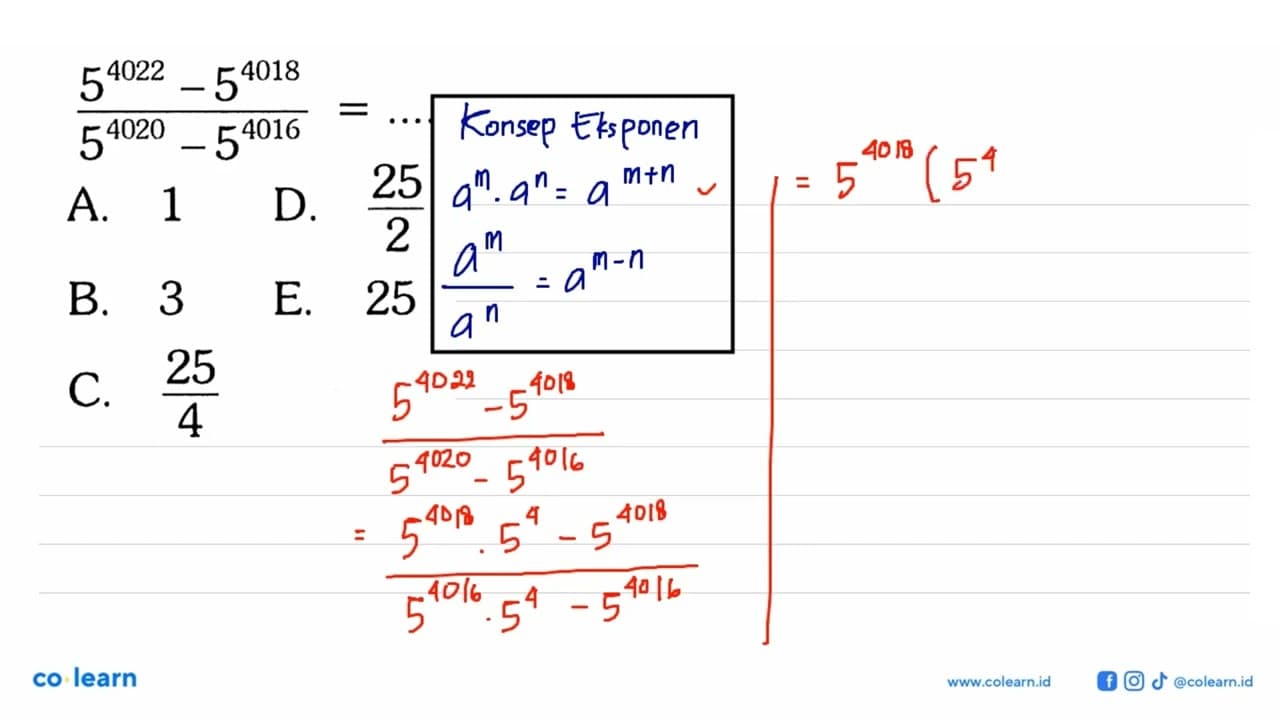 5^4022 – 5^4018 / 5^4020 – 5^4016 = ....
A. 1 D. 25/2
B. 3 E. 25
C. 25/4
Konsep Eksponen
a^m . a^n = a^m+n ✓
a^m / a^n = a^m-n
5^4022 - 5^4018 / 5^4020 - 5^4016
= 5^4018 . 5^4 - 5^4018 / 5^4016 . 5^4 - 5^4016
= 5^4018 ( 5^4
co learn
www.colearn.id
@colearn.id